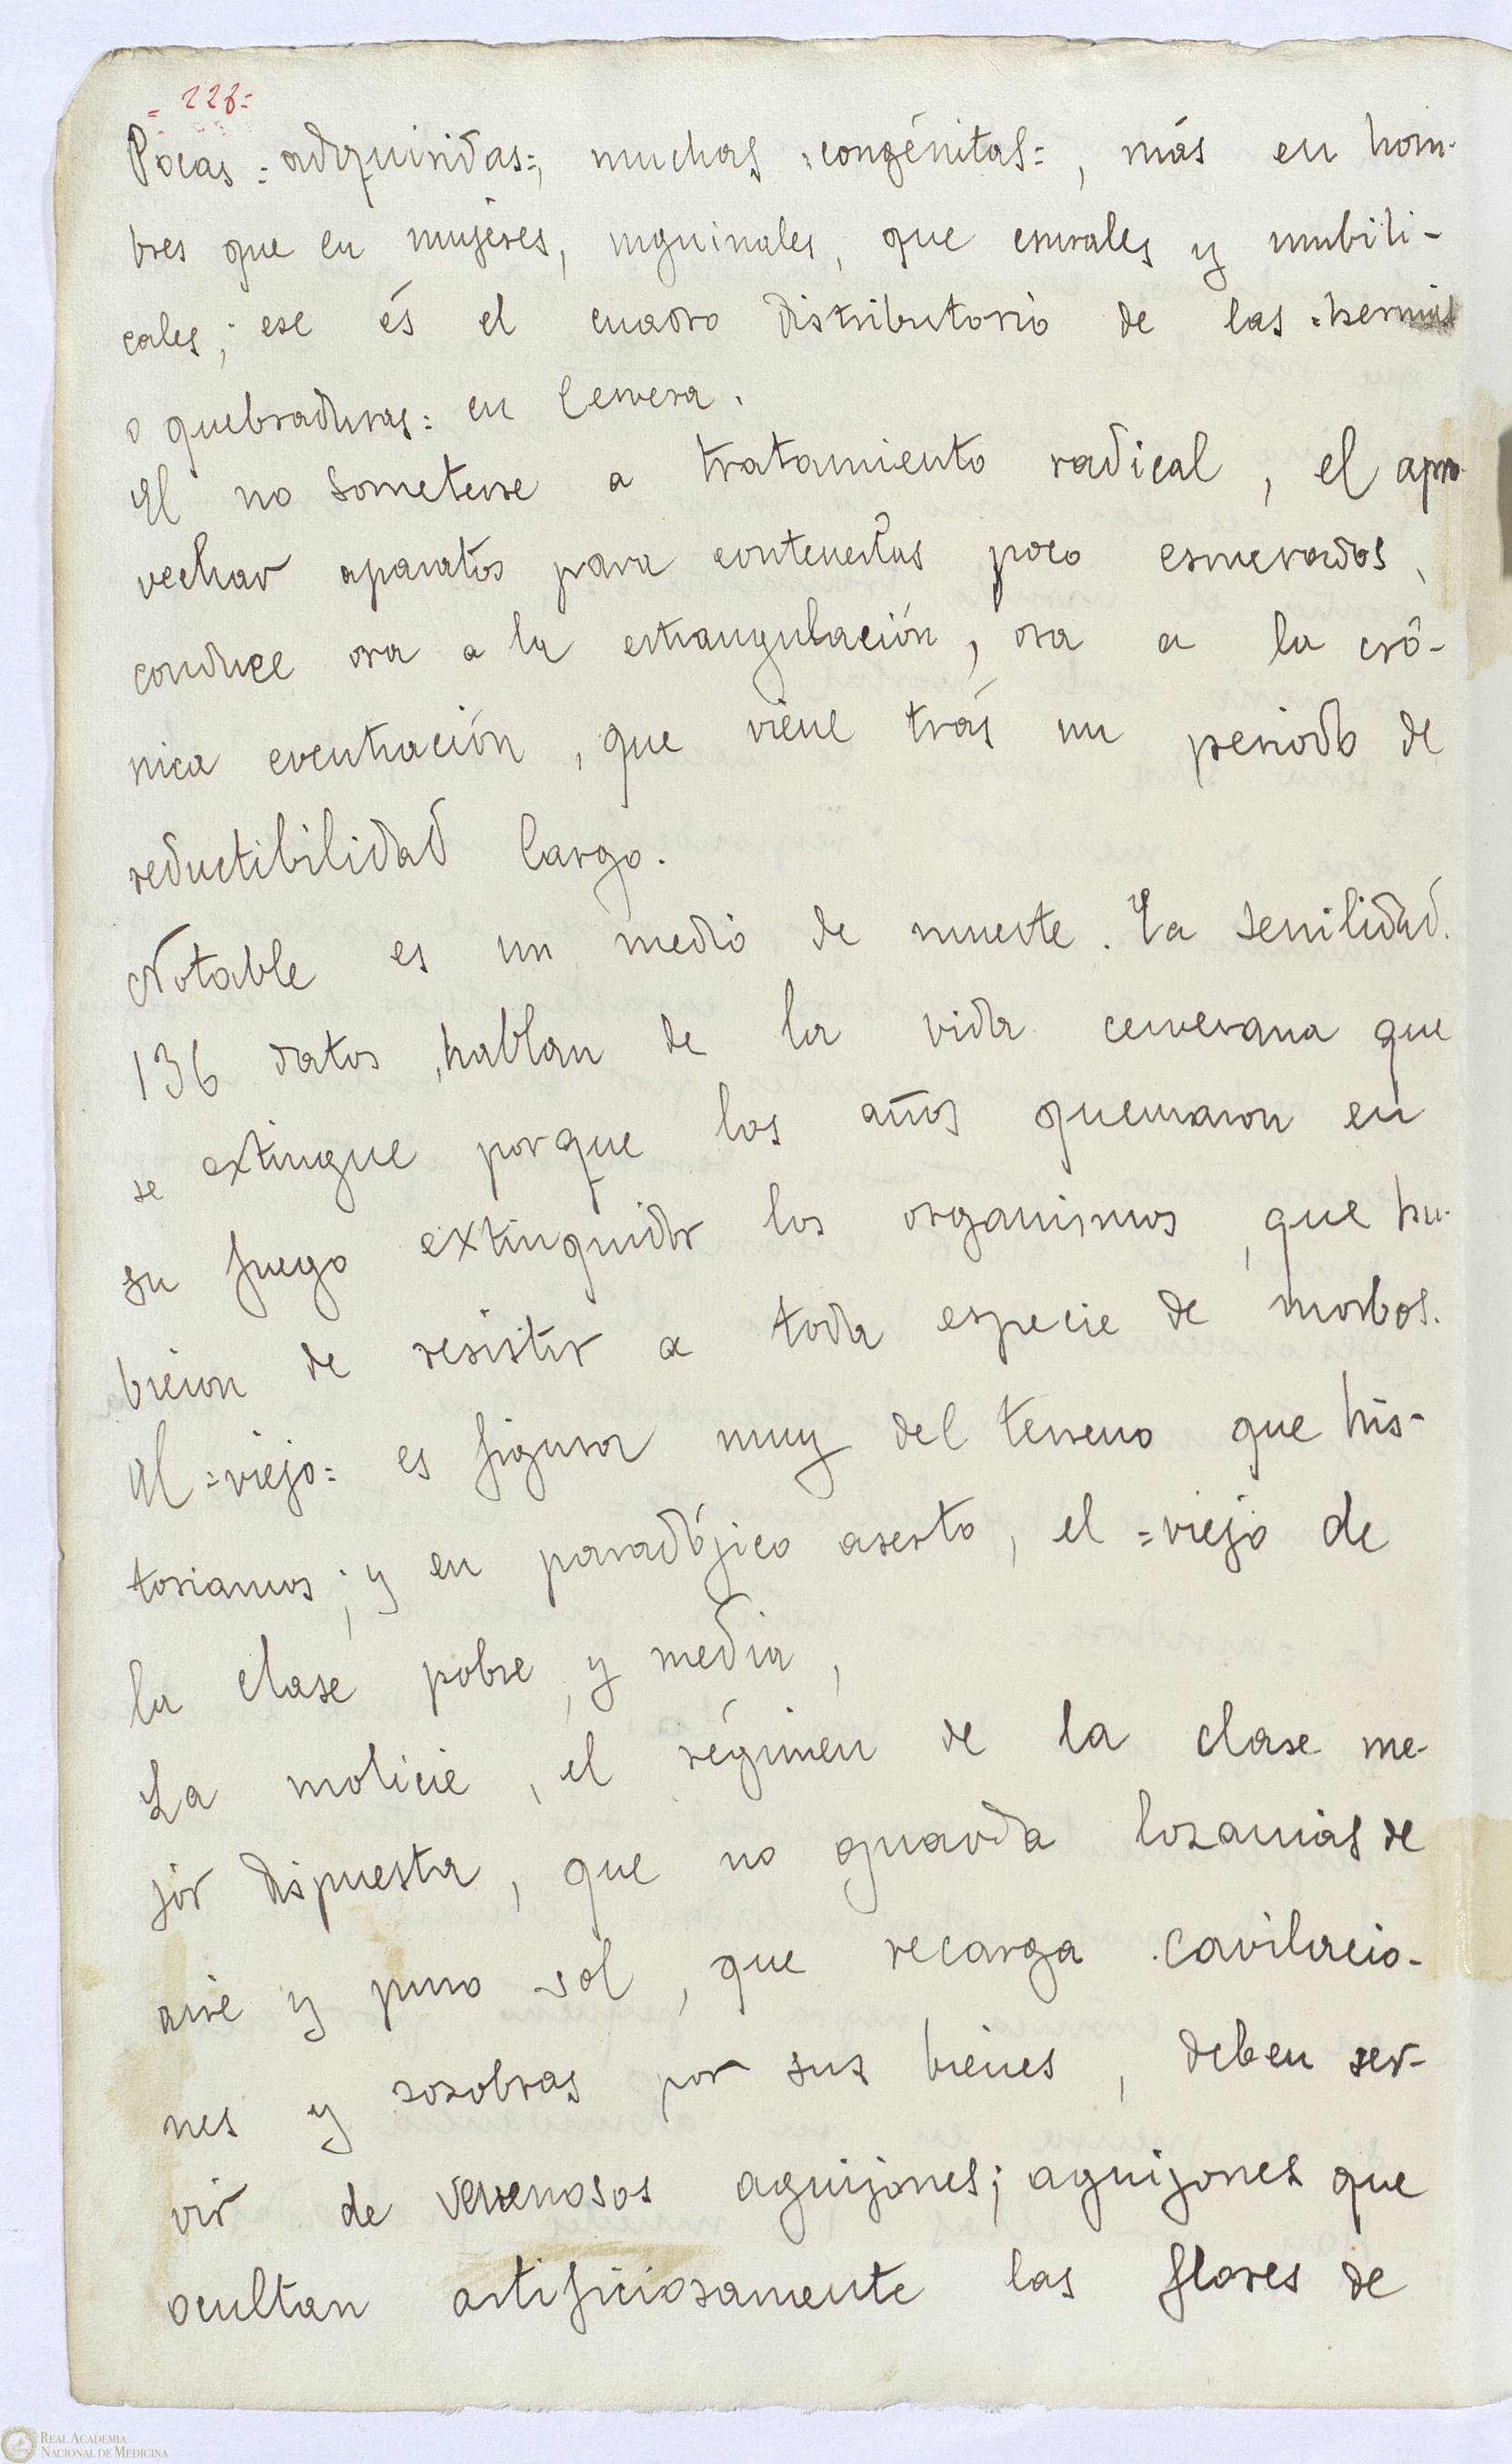 = 228=
Pocas =adquiridas=, muchas =congénitas=, más en hom-
bres que en mujeres, inguinales, que crurales y umbili-
cales; ese és el cuadro distributorio de las =hernias
o quebraduras= en Cervera.
El no someterse a tratamiento radical, el apro-
vechar aparatos para contenerlas poco esmerados,
conduce ora a la estrangulación, ora a la cró-
nica eventración, que viene trás un periodo de
reductibilidad largo.
Notable es un medio de muerte. La senilidad.
136 datos, hablan de la vida cerverana que
se extingue porque los años quemaron en
su fuego extinguidor los organismos, que hu-
bieron de resistir a toda especie de morbos.
El =viejo= es figura muy del terreno que his-
toriamos; y en paradójico aserto, el =viejo de
la clase pobre, y media,
La molicie, el régimen de la clase me-
jor dispuesta, que no guarda lozanias de
aire y puro sol, que recarga cavilacio-
nes y zozobras por sus bienes, deben ser-
vir de venenosos aguijones; aguijones que
ocultan artificiosamente las flores de
REAL ACADEMIA
NACIONAL DE MEDICINA